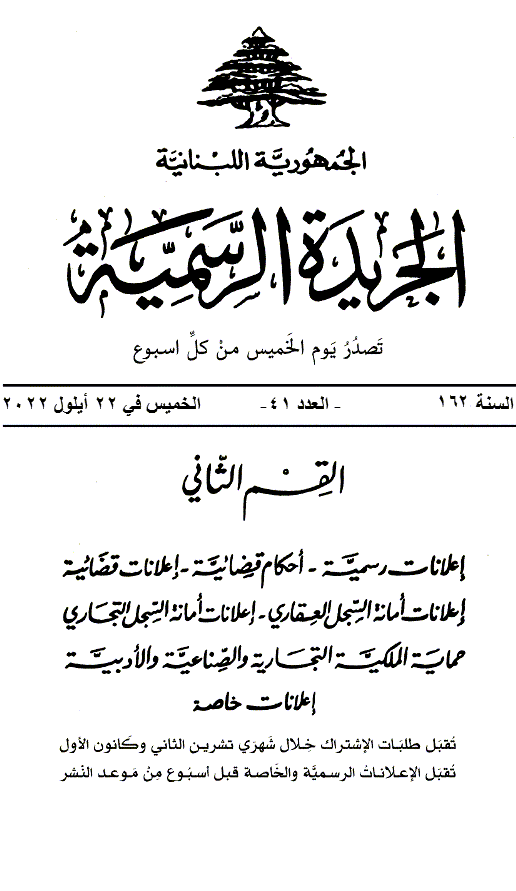 الجُمهُوريَّة اللبْنَانيَّة
الجَريدَة الرسَّمِيَّة
تَصدُرُ يَوم الخَميس منْ كلِّ اسبوع
السنة ١٦٢ - العدد ٤١- الخميس في ٢٢ أيلول ٢٠٢٢
القِسْم الثّاني
إعلانات رسميَّة - أحكام قضائيَّة - إعلانات قضائية
إعلانات أمانة السِّجل العقاري - إعلانات أمانة السِّجل التجاري
حماية الملكيَّة التجارية والصِّناعيَّة والأدبيَّة
إعلانات خاصة
تُقبَل طلبَات الإشتراك خِلال شَهرَي تشرين الثاني وكَانون الأول
تُقبَل الإعلاناتُ الرسميَّة والخَاصة قبل أسبُوع مِنْ مَوعد النَشر